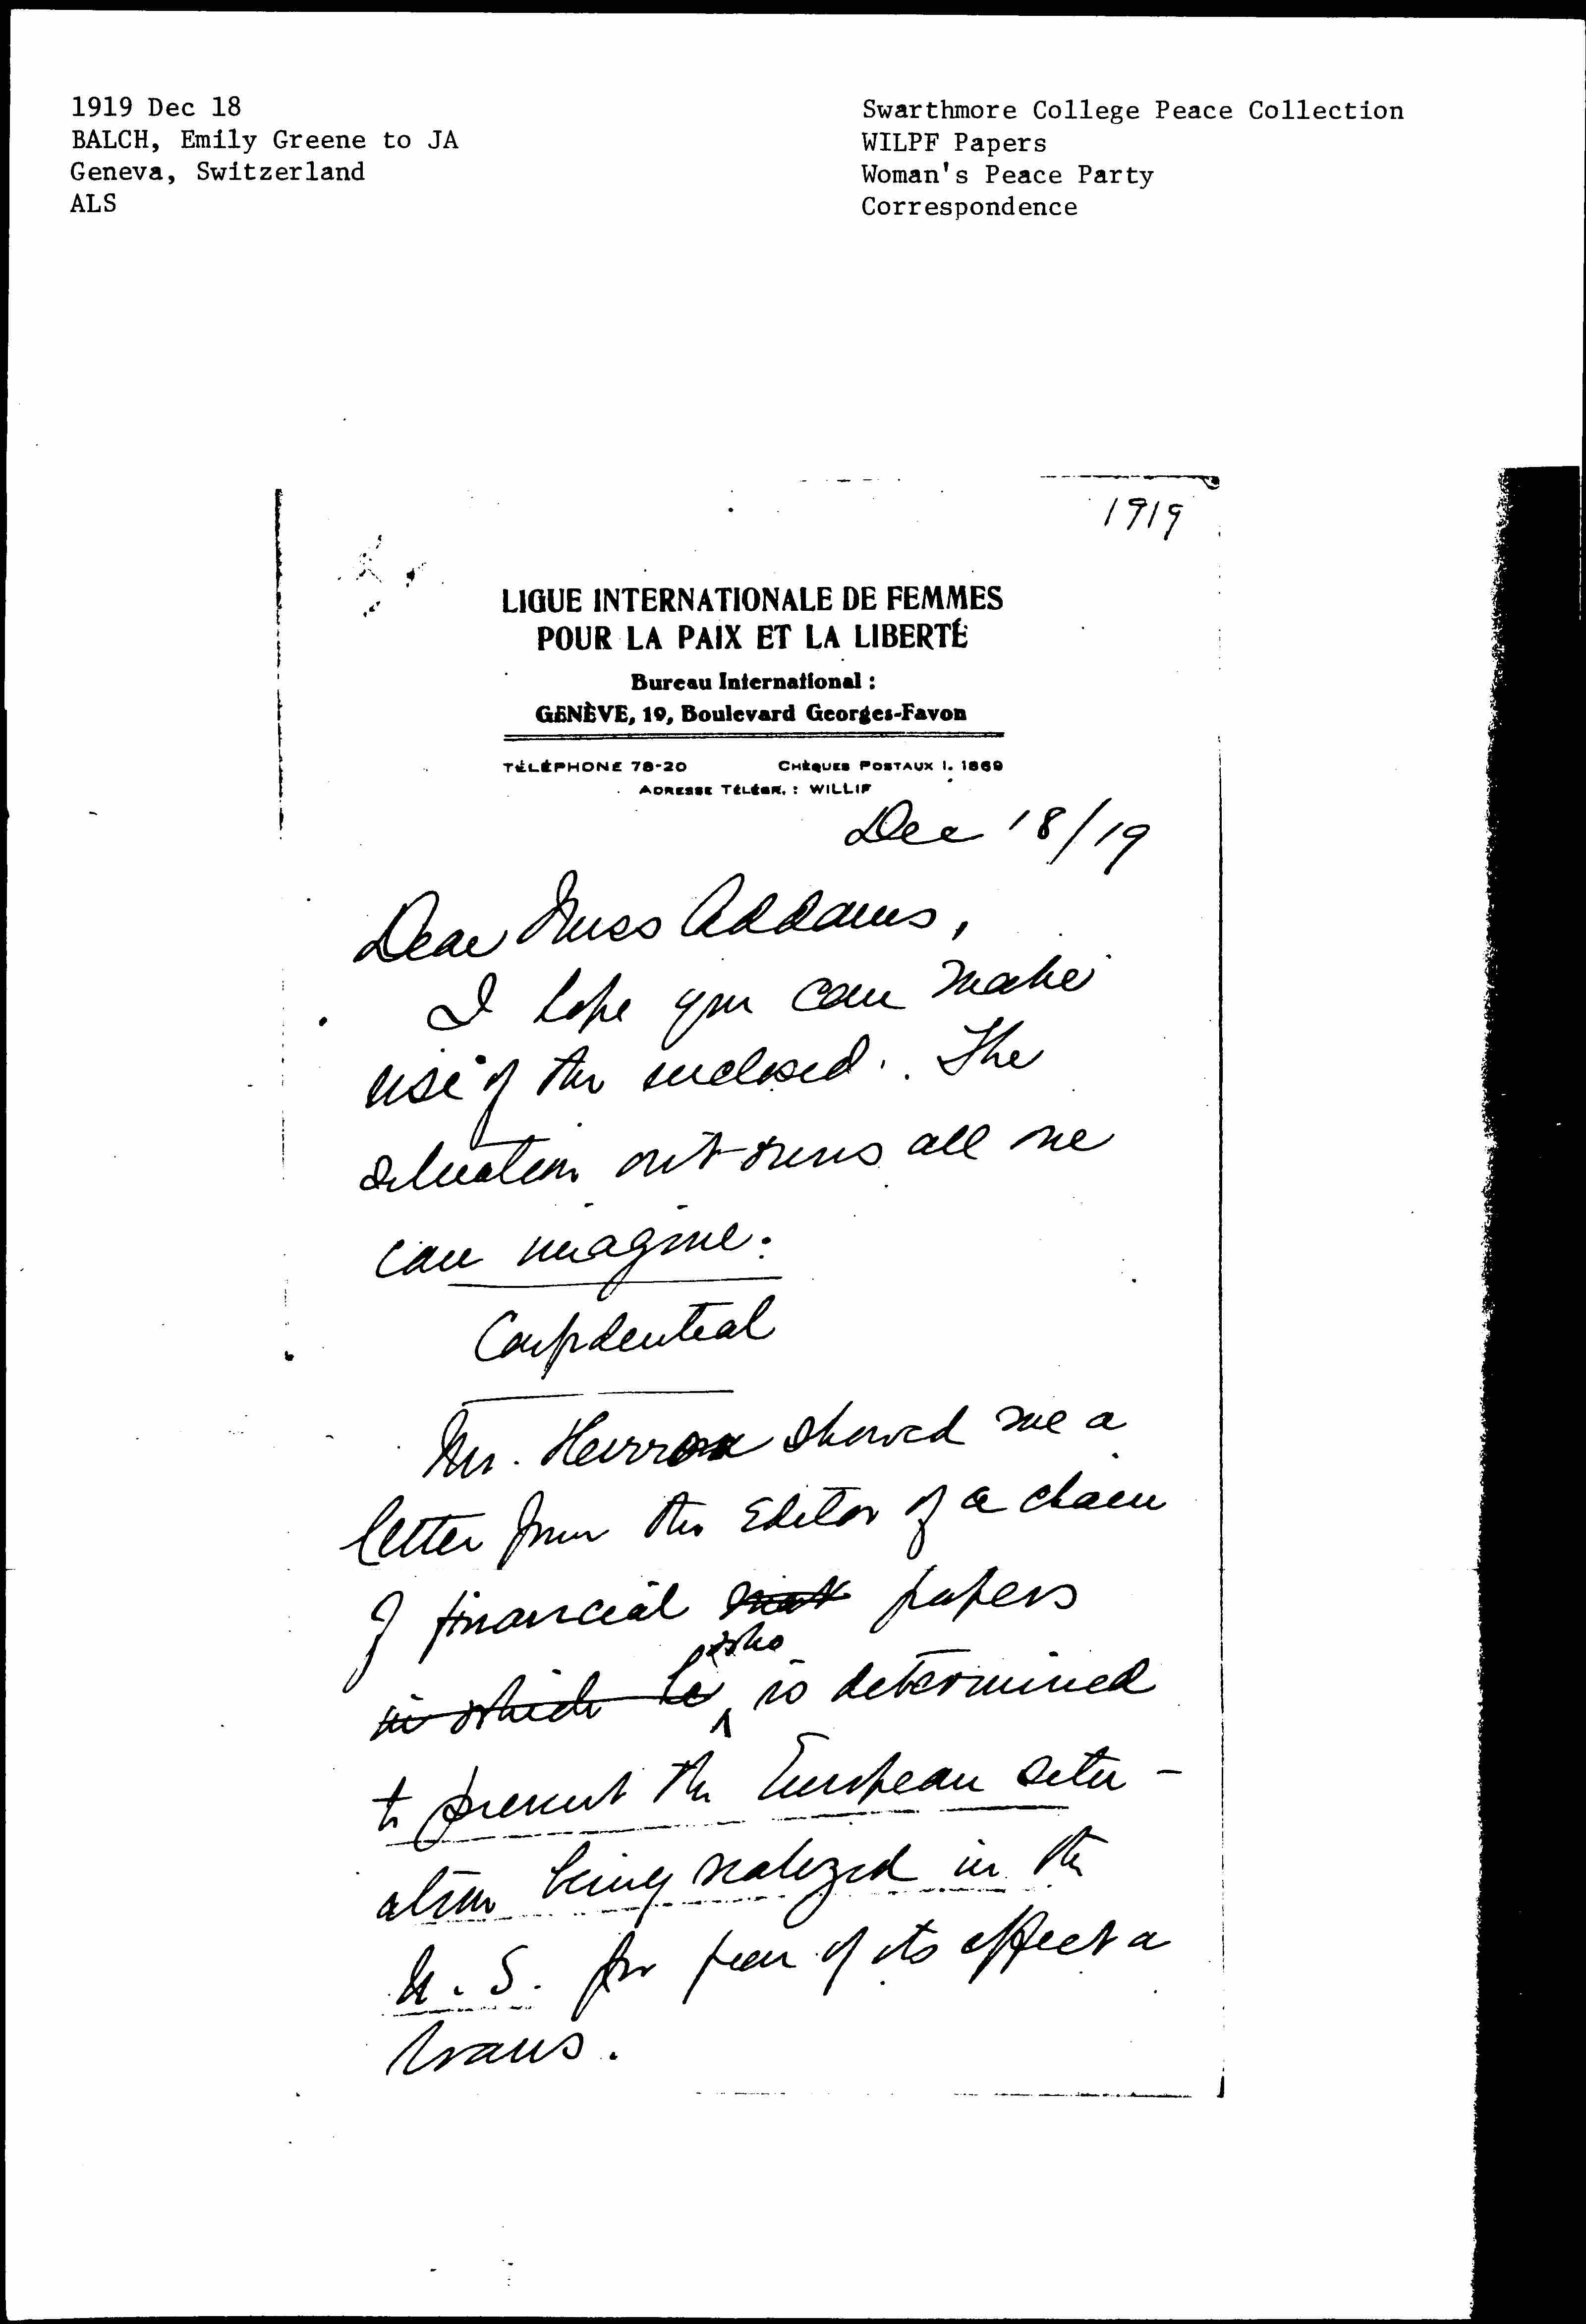 1919 Dec 18
BALCH, Emily Greene to JA
Geneva, Switzerland
ALS
Swarthmore College Peace Collection
WILPF Papers
Woman's Peace Party
Correspondence
1919
LIGUE INTERNATIONALE DE FEMMES
POUR LA PAIX ET LA LIBERTÉ
Bureau International :
GENÈVE, 19, Boulevard Georges-Favon
TÉLÉPHONE 78-20 CHÈQUES POSTAUX I. 1869
ADRESSE TÉLÉGR. : WILLIF
Dec 18/19
Dear Miss Addams,
I hope you can make
use of the enclosed. The
situation out-runs all one
can imagine.
Confidential
Mr. Herron showed me a
letter from the Editor of a chain
of financial papers
in which he who is determined
to prevent the European situ-
ation being realized in the
U. S. for fear of its effect a
loans.